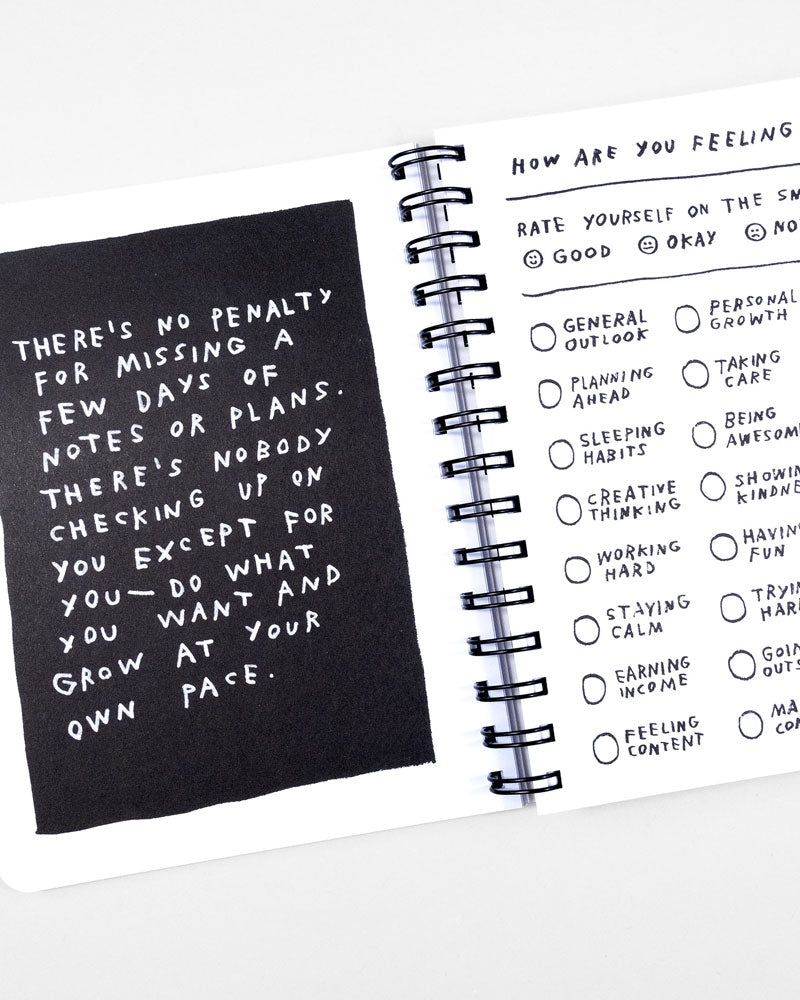 THERE'S NO PENALTY
FOR MISSING A
FEW DAYS OF
NOTES OR PLANS.
THERE'S NOBODY
CHECKING UP ON
YOU EXCEPT FOR
YOU—DO WHAT
YOU WANT AND
GROW AT YOUR
OWN PACE.
HOW ARE YOU FEELING
RATE YOURSELF ON THE
GOOD OKAY
GENERAL
OUTLOOK
PERSONAL
GROWTH
PLANNING
AHEAD
TAKING
CARE
SLEEPING
HABITS
BEING
CREATIVE
THINKING
WORKING
HARD
FUN
STAYING
CALM
EARNING
INCOME
FEELING
CONTENT